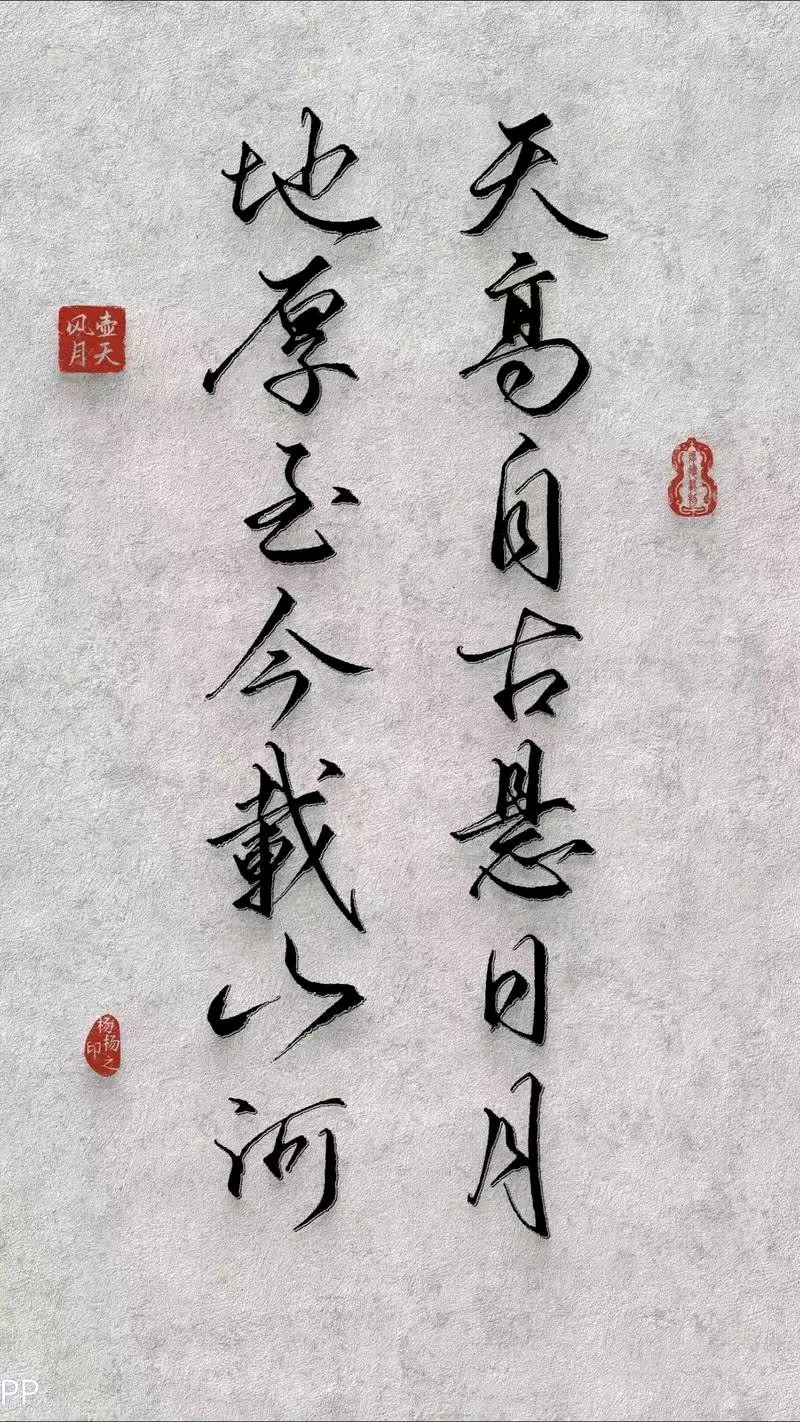 天高自古悬日月
地厚至今載山河
厚德載物
壶天
风月
杨杨之
印
PP